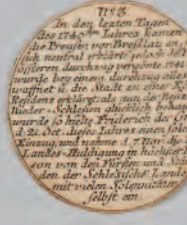 N: 8.
In den lezten Tagen
des 1740sten Jahres kamen
die Preußen vor Breßlau an
sich neutral erklärte jedoch
öfteren durchzug vergönte. 1741
wurde bey einem durchzug alles
waffnet u. die Stadt zu einer K
Residenz erklärt: als nun der
Nieder-Schlesien glücklich
wurde so hielte Fridericus der
d. 31 Oct. dieses Jahres einen
Einzug und nahme d. 7 Nov. die
Landes-Huldigung in höchster
son von den Fürsten und
den der Schlesische Lande
mit vielen Solennitäten
selbst ein